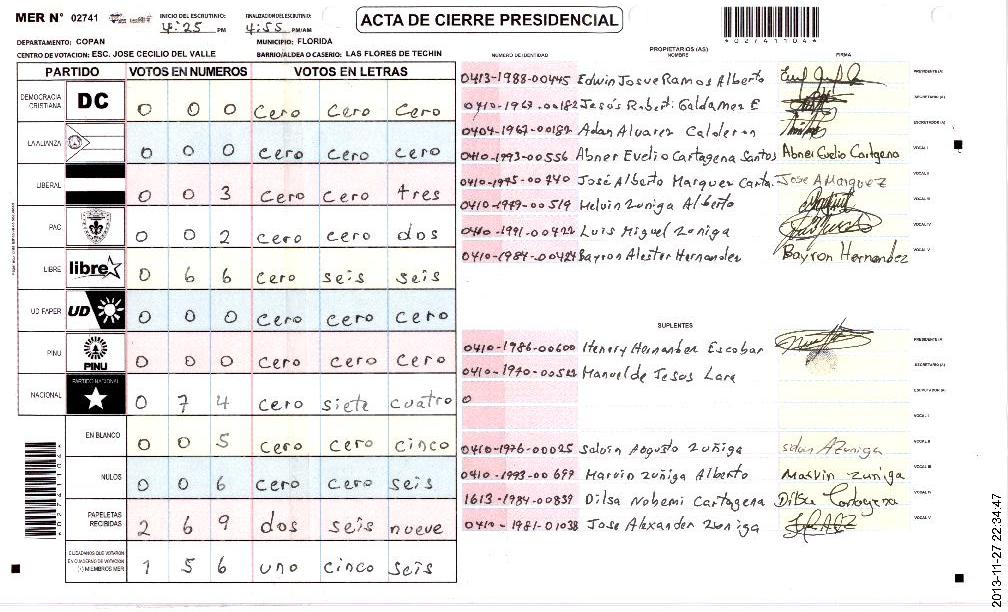 MER N° 02741
INICIO DEL ESCRUTINIO: 4:25 PM
FINALIZACION DEL ESCRUTINIO: 4:55 PM/AM
ACTA DE CIERRE PRESIDENCIAL
*02741104*
DEPARTAMENTO: COPAN
MUNICIPIO: FLORIDA
CENTRO DE VOTACION: ESC. JOSE CECILIO DEL VALLE
BARRIO/ALDEA O CASERIO: LAS FLORES DE TECHIN
PARTIDO VOTOS EN NUMEROS VOTOS EN LETRAS
DEMOCRACIA CRISTIANA DC 0 0 0 cero cero cero
LA ALIANZA 0 0 0 cero cero cero
LIBERAL 0 0 3 cero cero tres
PAC 0 0 2 cero cero dos
LIBRE libre 0 6 6 cero seis seis
UD FAPER UD 0 0 0 cero cero cero
PINU PINU 0 0 0 cero cero cero
NACIONAL PARTIDO NACIONAL 0 7 4 cero siete cuatro
EN BLANCO 0 0 5 cero cero cinco
NULOS 0 0 6 cero cero seis
PAPELETAS RECIBIDAS 2 6 9 dos seis nueve
CIUDADANOS QUE VOTARON EN CUADERNO DE VOTACION (+) MIEMBROS MER 1 5 6 uno cinco seis
*02741104*
PROPIETARIOS (AS)
NUMERO DE IDENTIDAD NOMBRE FIRMA
0413-1988-00445 Edwin Josue Ramos Alberto PRESIDENTE (A)
0410-1963-00182 Jesús Robert Galdamez E SECRETARIO (A)
0404-1967-00182 Adan Alvarez Calderon ESCRUTADOR (A)
0410-1993-00556 Abner Evelio Cartagena Santos Abner Evelio Cartagena VOCAL I
0410-1975-00740 José Alberto Marquez Carta. Jose A Marquez VOCAL II
0410-1979-00519 Melvin Zuniga Alberto VOCAL III
0410-1991-00422 Luis Miguel Zuniga VOCAL IV
0410-1984-00424 Bayron Alexter Hernandez Bayron Hernandez VOCAL V
SUPLENTES
0410-1986-00600 Henery Hernandez Escobar PRESIDENTE (A)
0410-1970-00522 Manuel de Jesus Lara SECRETARIO (A)
0 ESCRUTADOR (A)
VOCAL I
0410-1976-00025 Salvin Augusto Zuñiga VOCAL II
0410-1993-00677 Marvin Zuñiga Alberto Marvin Zuniga VOCAL III
1613-1984-00839 Dilsa Nohemi Cartagena Dilsa Cartagena VOCAL IV
0410-1981-01038 Jose Alexander Zuniga VOCAL V
2013-11-27 22:34:47